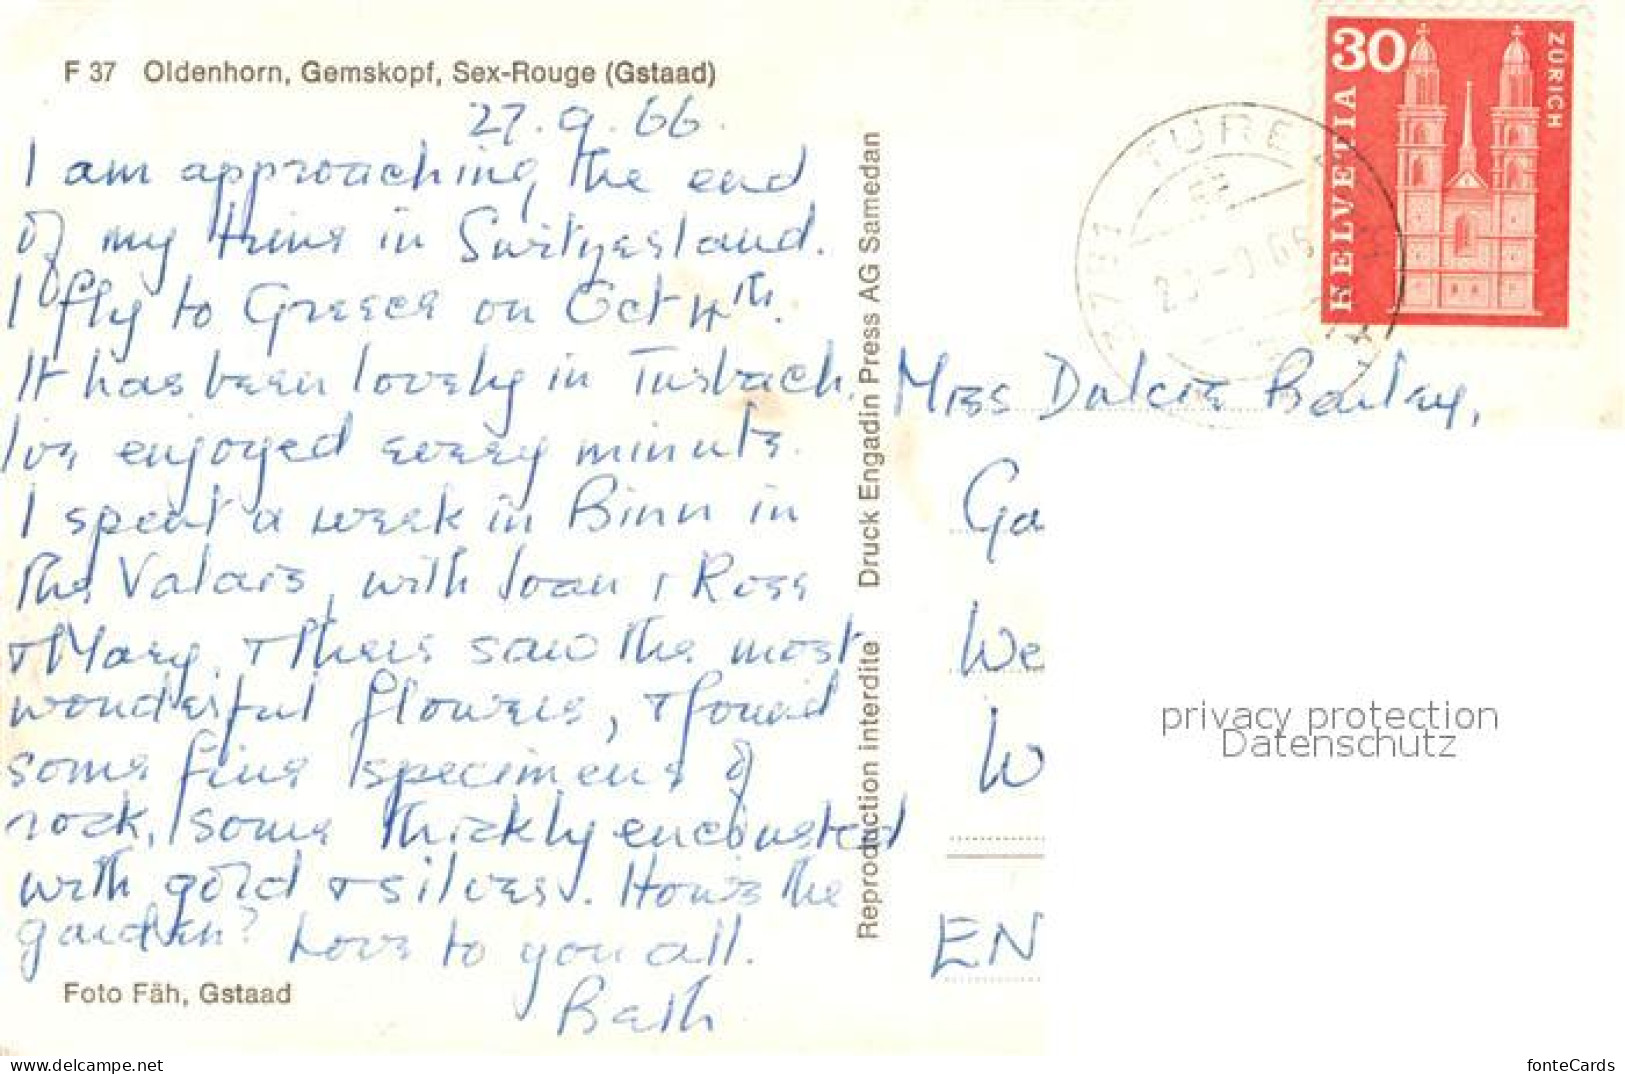 F 37 Oldenhorn, Gemskopf, Sex-Rouge (Gstaad)
27.9.66.
I am approaching the end
of my time in Switzerland.
I fly to Greece on Oct 4th.
It has been lovely in Turbach,
I've enjoyed every minute.
I spent a week in Binn in
the Valais, with Joan + Ross
+ Mary, + there saw the most
wonderful flowers, + found
some fine specimens of
rock, some thickly encrusted
with gold + silver. How's the
garden? Love to you all.
Beth
Foto Fäh, Gstaad
Reproduction interdite Druck Engadin Press AG Samedan
30
HELVETIA
ZÜRICH
3781 TURB
Miss Dulcie Bailey,
Ga
We
W
EN
privacy protection
Datenschutz
www.delcampe.net
fonteCards